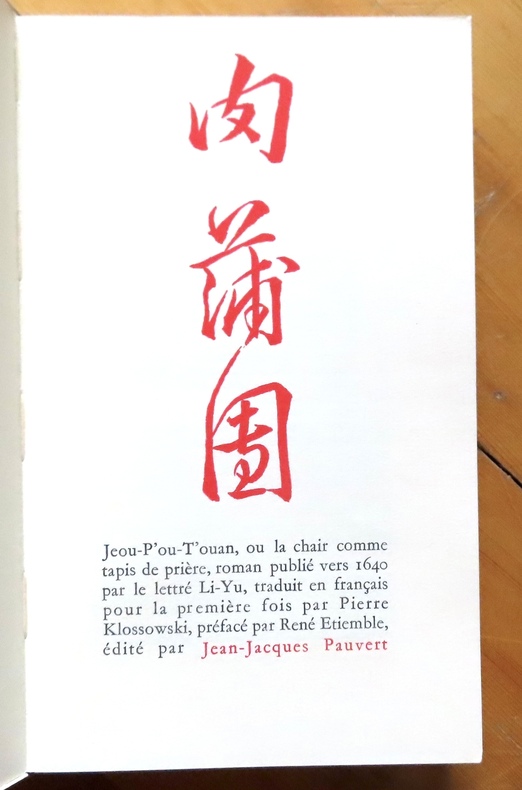 肉
蒲
團
Jeou-P'ou-T'ouan, ou la chair comme
tapis de prière, roman publié vers 1640
par le lettré Li-Yu, traduit en français
pour la première fois par Pierre
Klossowski, préfacé par René Etiemble,
édité par Jean-Jacques Pauvert